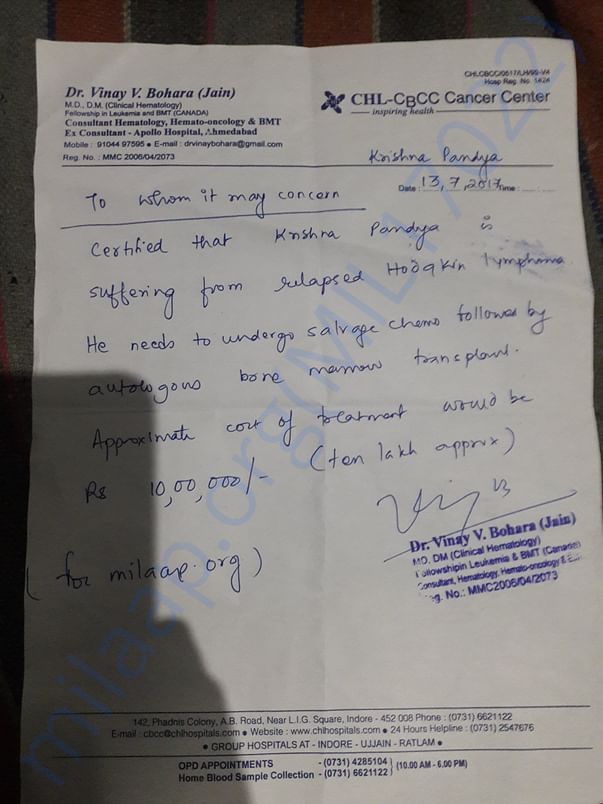 CHLCBCC/0517/LH/99-V4
Hosp Reg. No. 1424
Dr. Vinay V. Bohara (Jain)
M.D., D.M. (Clinical Hematology)
Fellowship in Leukemia and BMT (CANADA)
Consultant Hematology, Hemato-oncology & BMT
Ex Consultant - Apollo Hospital, Ahmedabad
Mobile : 91044 97595 ● E-mail : drvinaybohara@gmail.com
Reg. No. : MMC 2006/04/2073
CHL-CBCC Cancer Center
inspiring health
Krishna Pandya
Date : 13,7,2017 Time :
To whom it may concern
Certified that Krishna Pandya is
suffering from relapsed Hodgkin lymphoma
He needs to undergo salvage chemo followed by
autologous bone marrow transplant.
Approximate cost of treatment would be
Rs 10,00,000/- (ten lakh approx)
(for milaap.org)
Dr. Vinay V. Bohara (Jain)
MD, DM (Clinical Hematology)
Fellowship in Leukemia & BMT (Canada)
Consultant, Hematology, Hemato-oncology &
Reg. No.: MMC2006/04/2073
142, Phadnis Colony, A.B. Road, Near L.I.G. Square, Indore - 452 008 Phone : (0731) 6621122
E-mail : cbcc@chlhospitals.com ● Website : www.chlhospitals.com ● 24 Hours Helpline : (0731) 2547676
● GROUP HOSPITALS AT - INDORE - UJJAIN - RATLAM ●
OPD APPOINTMENTS - (0731) 4285104 (10.00 AM - 6.00 PM)
Home Blood Sample Collection - (0731) 6621122